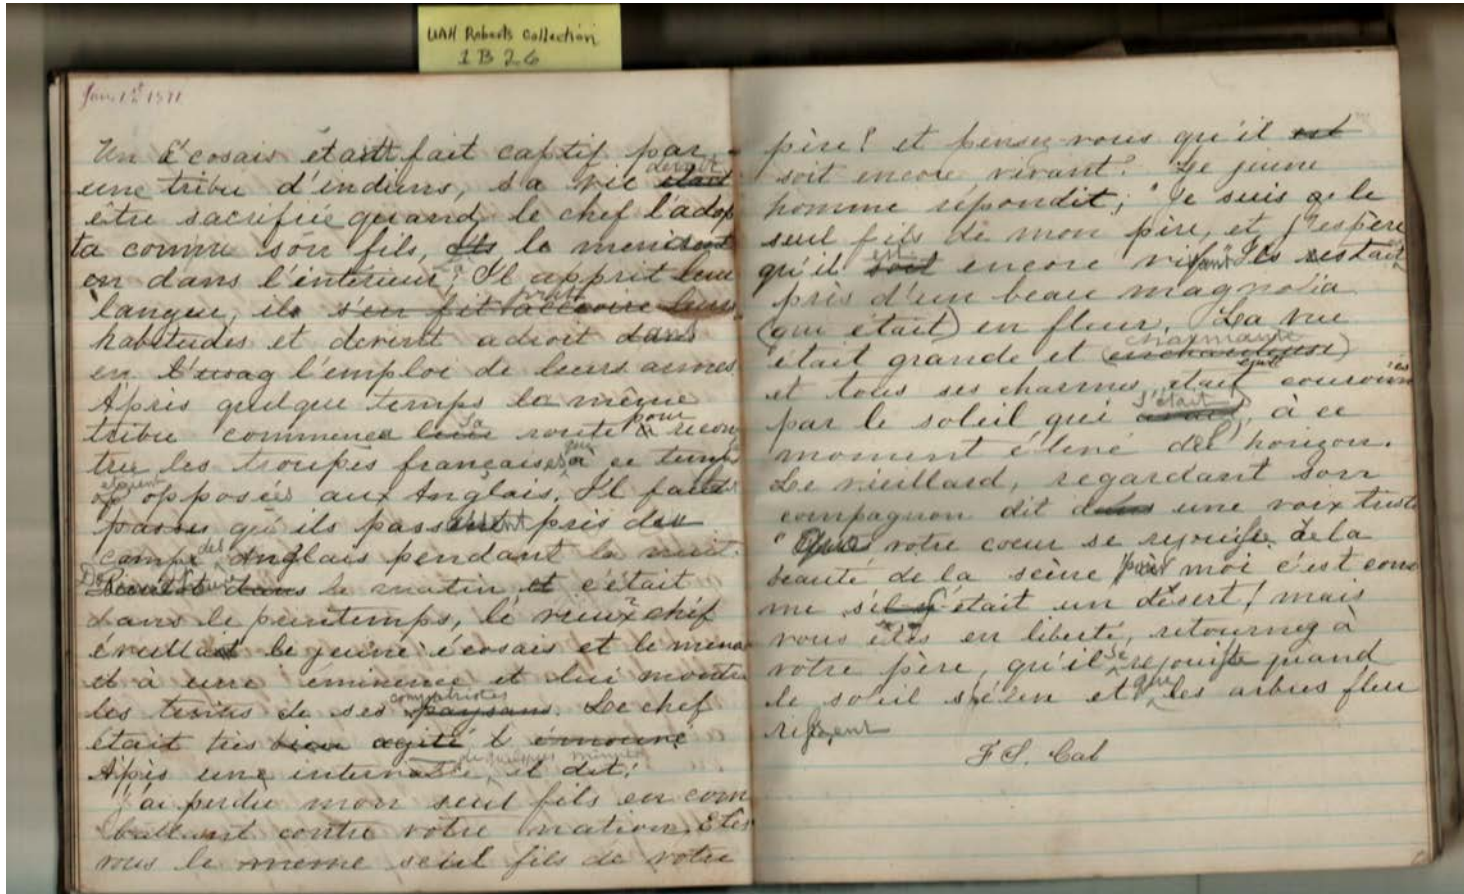 UAH Roberts Collection
1B26
Jan. 1st 1871
Un Écosais était fait captif par
devait
une tribu d'indiens, sa vie était
être sacrifiée quand le chef l'adop
ta comme son fils, Ils le menèrent
on dans l'intérieur; Il apprit leur
langue, ils s'en fit leurs
habitudes et devint adroit dans
en l'usag l'emploi de leurs armes.
Après quelque temps la même
sa pour
tribu commenca leur route à recon
tre les troupes françaises à ce temps
étaient
opposées aux Anglais. Il
passes qu'ils passèrent près des
des
camps Anglais pendant la nuit.
dans le matin et c'était
dans le printemps, le vieux chef
éveillait le jeune écosais et le mena
et à une éminence et lui montra
compatriotes
les tentes de ses paysans. Le chef
était très bien agité
de quelques minutes
Après une intervalle, il dit:
J'ai perdu mon seul fils en com
battant contre votre nation. Êtes
vous le meme seul fils de votre
père? et pensez-vous qu'il est
soit encore vivant? Le jeune
homme répondit; "Je suis le
seul fils de mon père, et j'espère
est
qu'il soit encore vivant" Ils restait
près d'un beau magnolia
(qui était) en fleur. La vue
charmante
était grande et
et tous ses charmes était couronnés
s'était
par le soleil qui avait, à ce
moment élevé de l'horizon.
Le vieillard, regardant son
compagnon dit dans une voix triste
"Que votre coeur se rejouisse de la
beauté de la scène pour moi c'est com
me s'il était un désert! mais
vous êtes en liberté, retournez à
se
votre père, qu'il rejouisse quand
que
le soleil s'élève et les arbres fleu
rissent
F. S. Cal